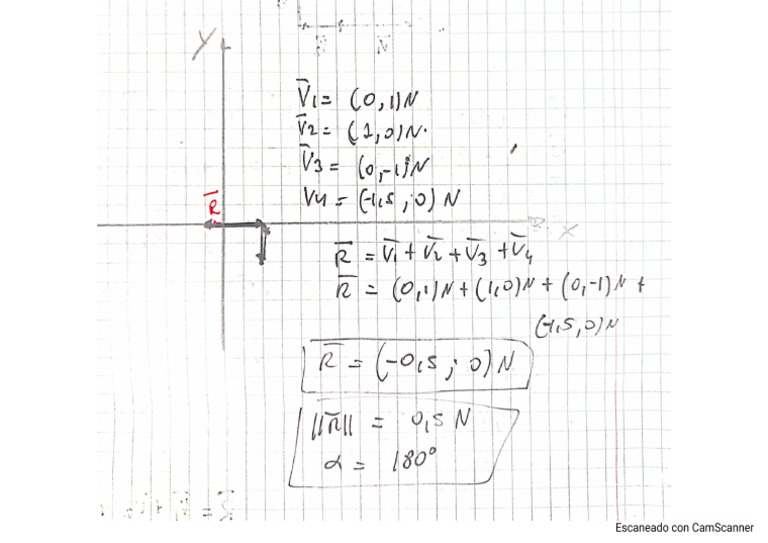 Y
V̄1 = (0,1)N
V̄2 = (1,0)N.
V̄3 = (0,-1)N
V4 = (-1,5 ; 0) N
R̄
X
R̄ = V̄1 + V̄2 + V̄3 + V̄4
R̄ = (0,1)N + (1,0)N + (0,-1)N +
(-1,5, 0)N
R̄ = (-0,5 ; 0) N
||R̄|| = 0,5 N
α = 180°
Escaneado con CamScanner